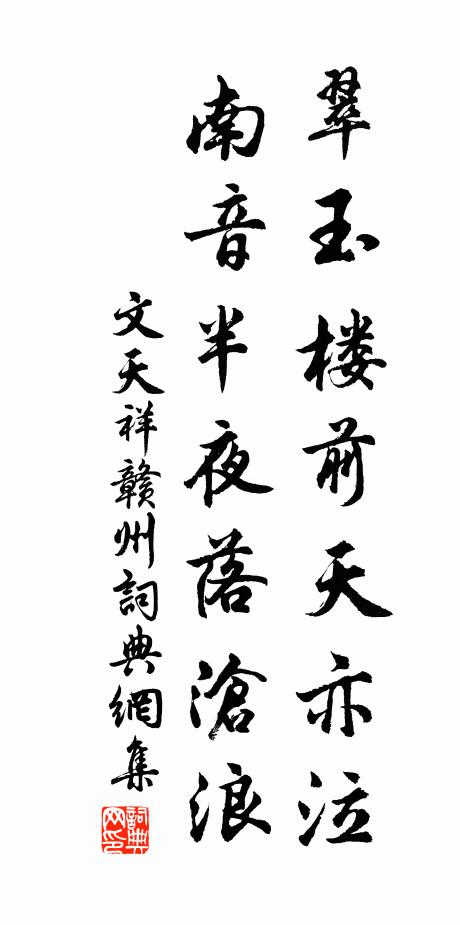 翠玉楼前天亦泣
南音半夜落滄浪
文天祥贛州詞典網集
詞典
网印